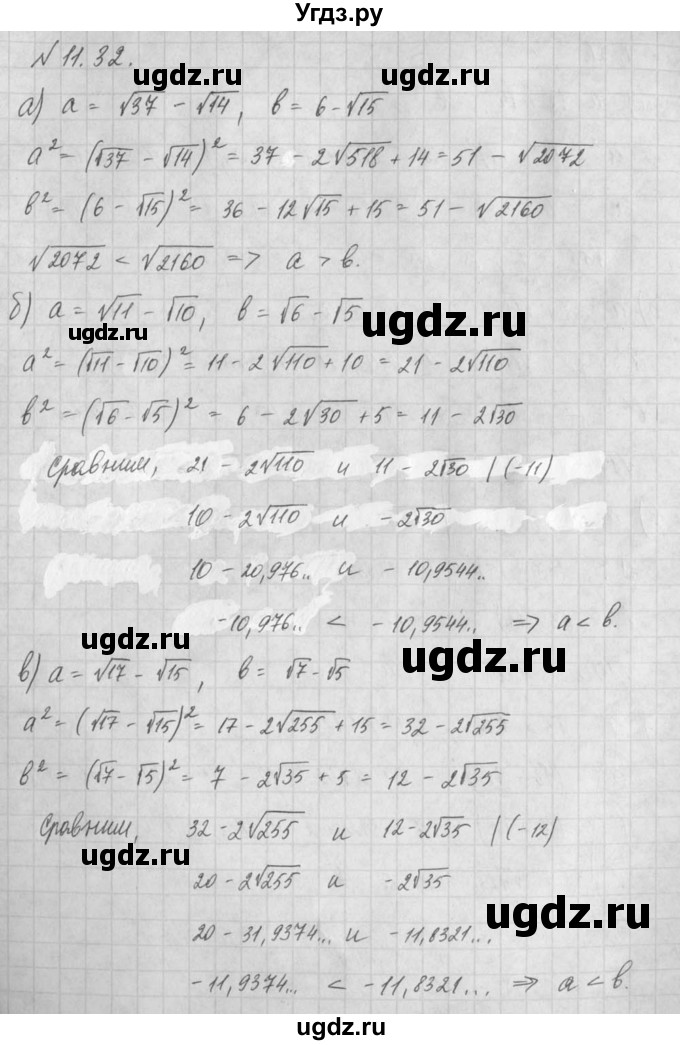 Угдз.ру
№ 11.32.
ugdz.ru ugdz.ru
а) a = √37 − √14, b = 6 − √15
a² = (√37 − √14)² = 37 − 2√518 + 14 = 51 − √2072
b² = (6 − √15)² = 36 − 12√15 + 15 = 51 − √2160
ugdz.ru ugdz.ru
√2072 < √2160 => a > b.
б) a = √11 − √10, b = √6 − √5
ugdz.ru ugdz.ru
a² = (√11 − √10)² = 11 − 2√110 + 10 = 21 − 2√110
b² = (√6 − √5)² = 6 − 2√30 + 5 = 11 − 2√30
Сравним, 21 − 2√110 и 11 − 2√30 | (−11)
10 − 2√110 и − 2√30
10 − 20,976.. и − 10,9544..
−10,976.. < − 10,9544.. => a < b.
ugdz.ru ugdz.ru
в) a = √17 − √15, b = √7 − √5
a² = (√17 − √15)² = 17 − 2√255 + 15 = 32 − 2√255
b² = (√7 − √5)² = 7 − 2√35 + 5 = 12 − 2√35
Сравним, 32 − 2√255 и 12 − 2√35 | (−12)
ugdz.ru
20 − 2√255 и − 2√35
ugdz.ru
20 − 31,9374... и − 11,8321...
− 11,9374.. < − 11,8321... => a < b.
ugdz.ru